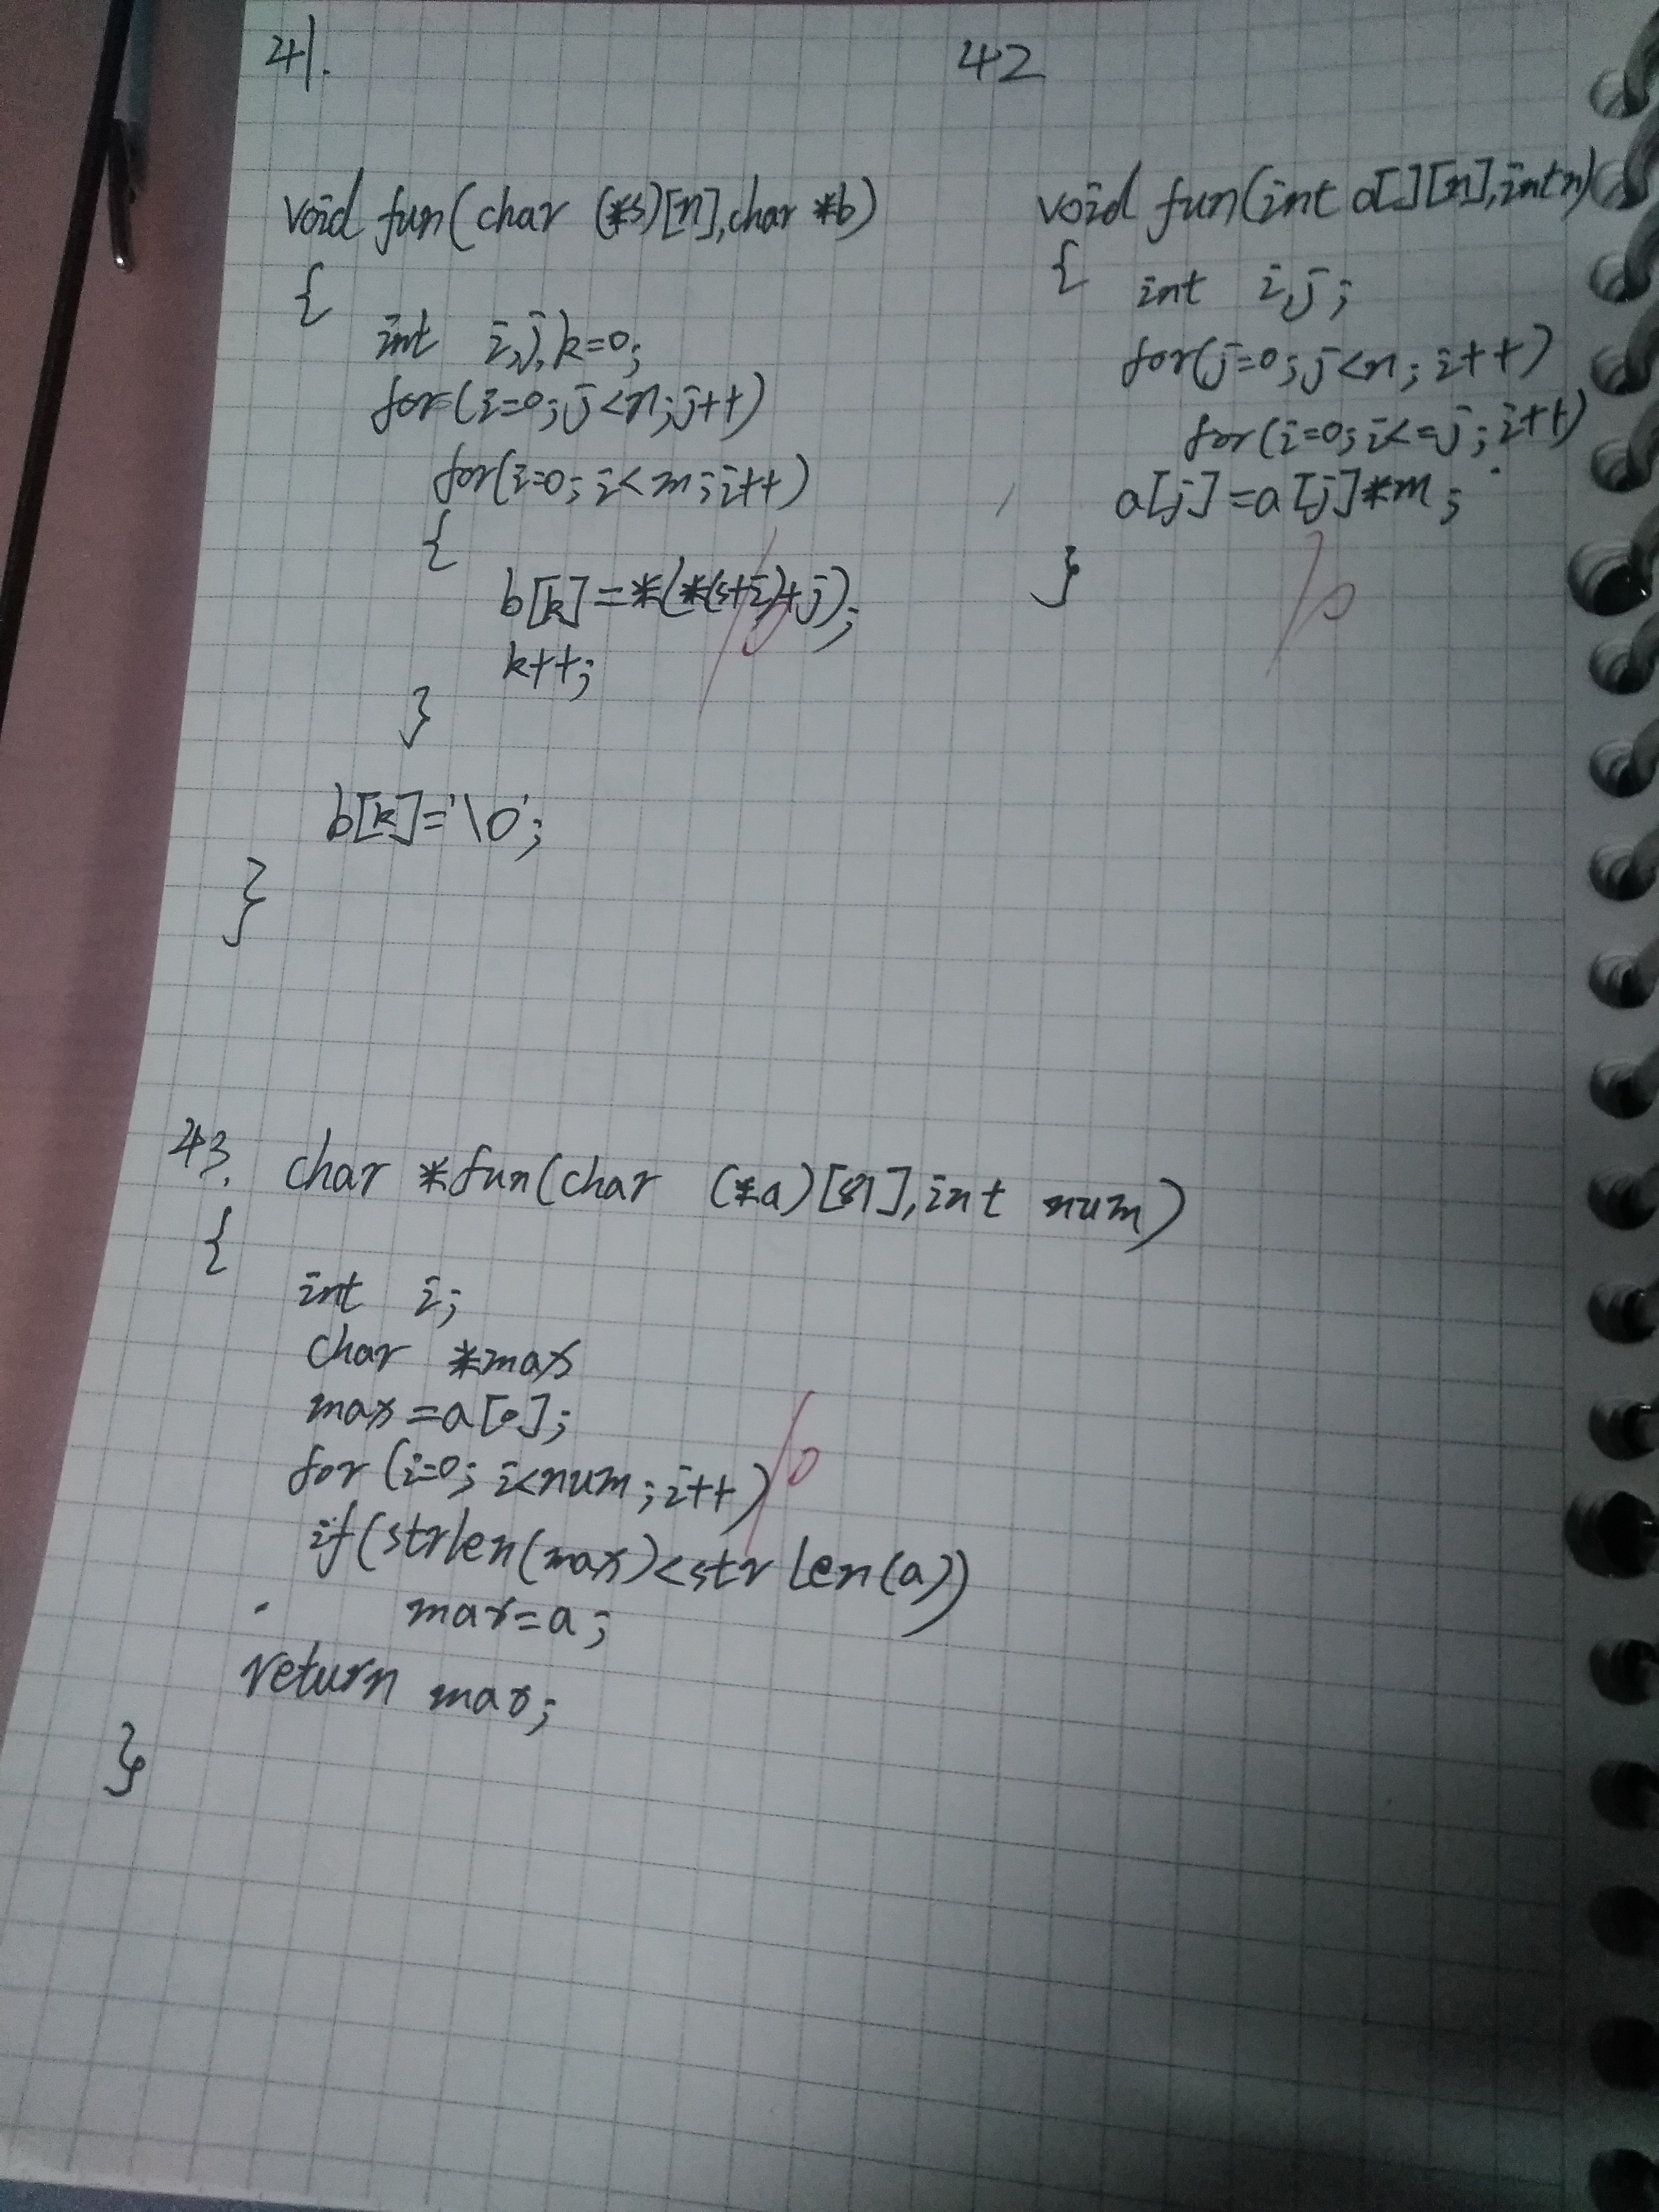 41.
void fun(char (*s)[n],char *b)
{
int i,j,k=0;
for(i=0;j<n;j++)
for(i=0;i<m;i++)
{
b[k]=*(*(s+i)+j);
k++;
}
b[k]='\0';
}
42
void fun(int a[][n],int n)
{ int i,j;
for(j=0;j<n;i++)
for(i=0;i<=j;i++)
a[j]=a[j]*m;
}
43. char *fun(char (*a)[81],int num)
{
int i;
char *max
max=a[0];
for(i=0;i<num;i++)
if(strlen(max)<strlen(a))
max=a;
return max;
}